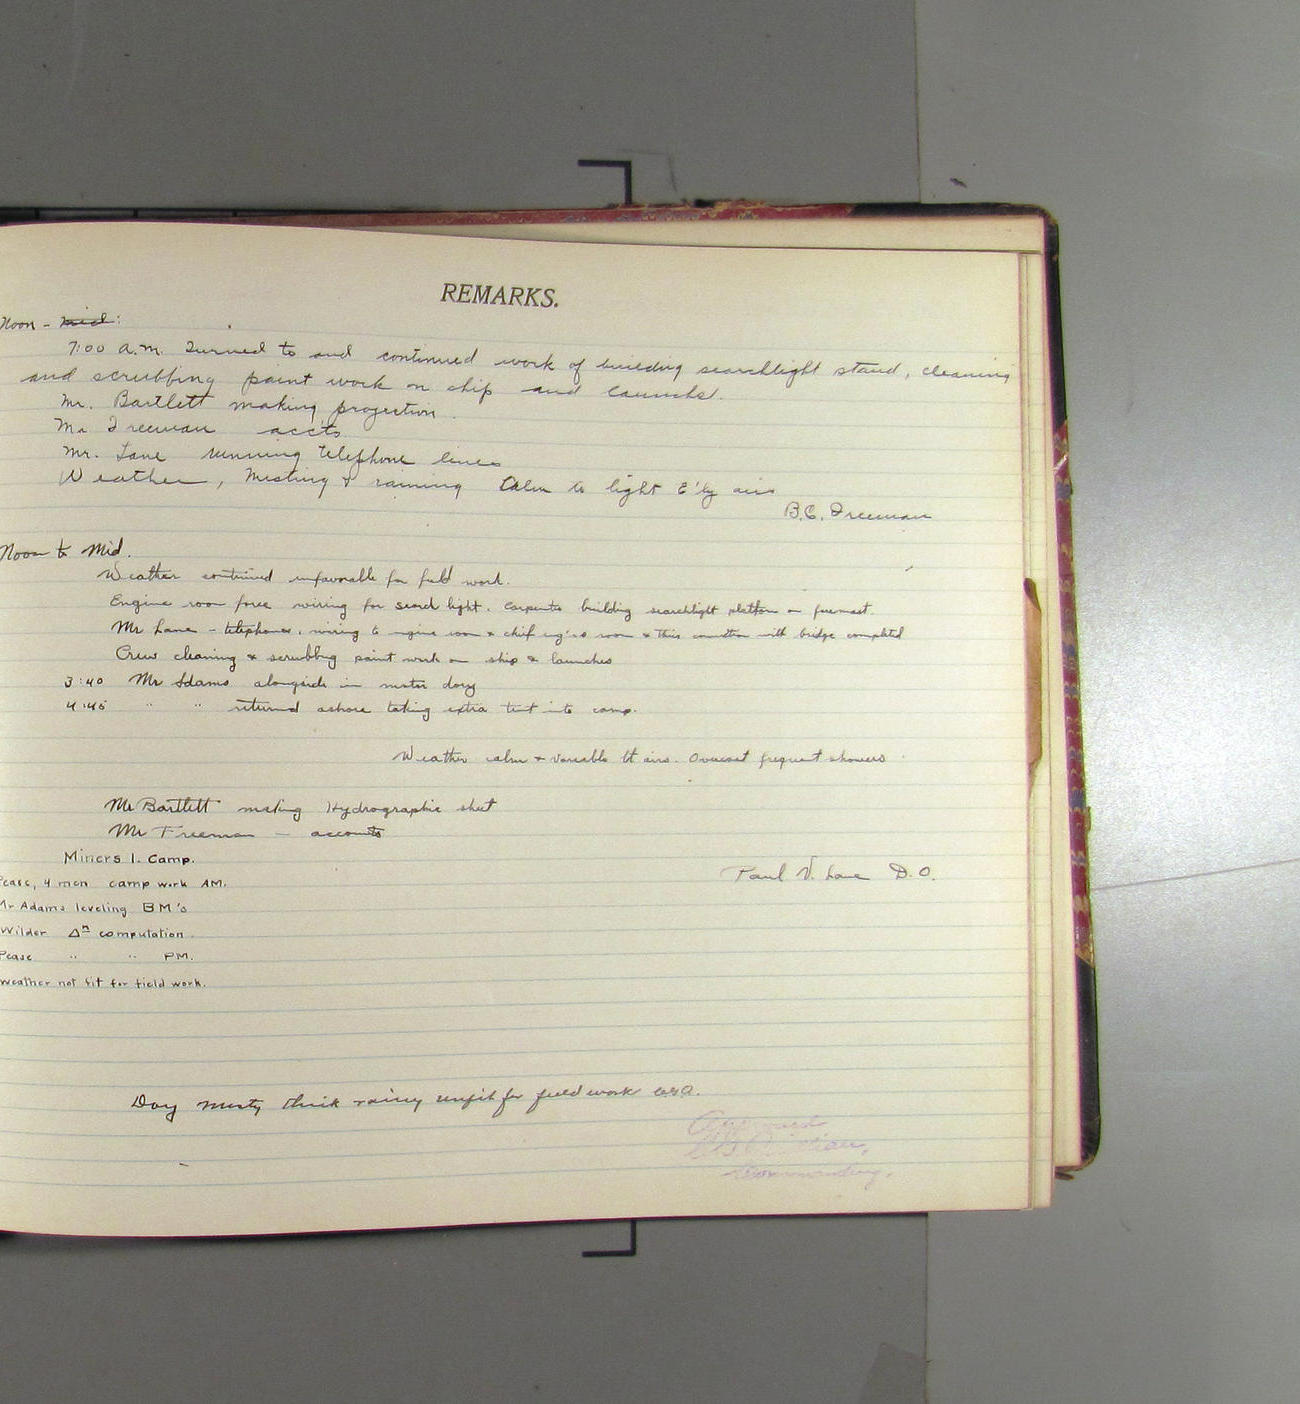 REMARKS.
Noon - mid:
7:00 a.m. Turned to and continued work of building searchlight stand, cleaning
and scrubbing paint work on ship and launches.
Mr. Bartlett making projection.
Mr Freeman accts
Mr. Lane running telephone lines
Weather, Misting & raining Calm to light E'ly airs
B.C. Freeman
Noon to Mid.
Weather continued unfavorable for field work.
Engine room force wiring for search light. Carpenter building searchlight platform on foremast.
Mr Lane - telephones, wiring to engine room & chief eng'rs room & this connection with bridge completed
Crew cleaning & scrubbing paint work on ship & launches
3:40 Mr Adams alongside in motor dory
4:45 " " returned ashore taking extra tent into camp.
Weather calm & variable lt airs. Overcast frequent showers.
Mr Bartlett making Hydrographic sheet
Mr Freeman - accounts
Miners I. Camp.
Pease, 4 men camp work AM.
Mr Adams leveling BM's
Wilder Δn computation.
Pease " " PM.
Weather not fit for field work.
Paul V. Lane D.O.
Day misty thick rainy unfit for field work
Approved
Commanding.